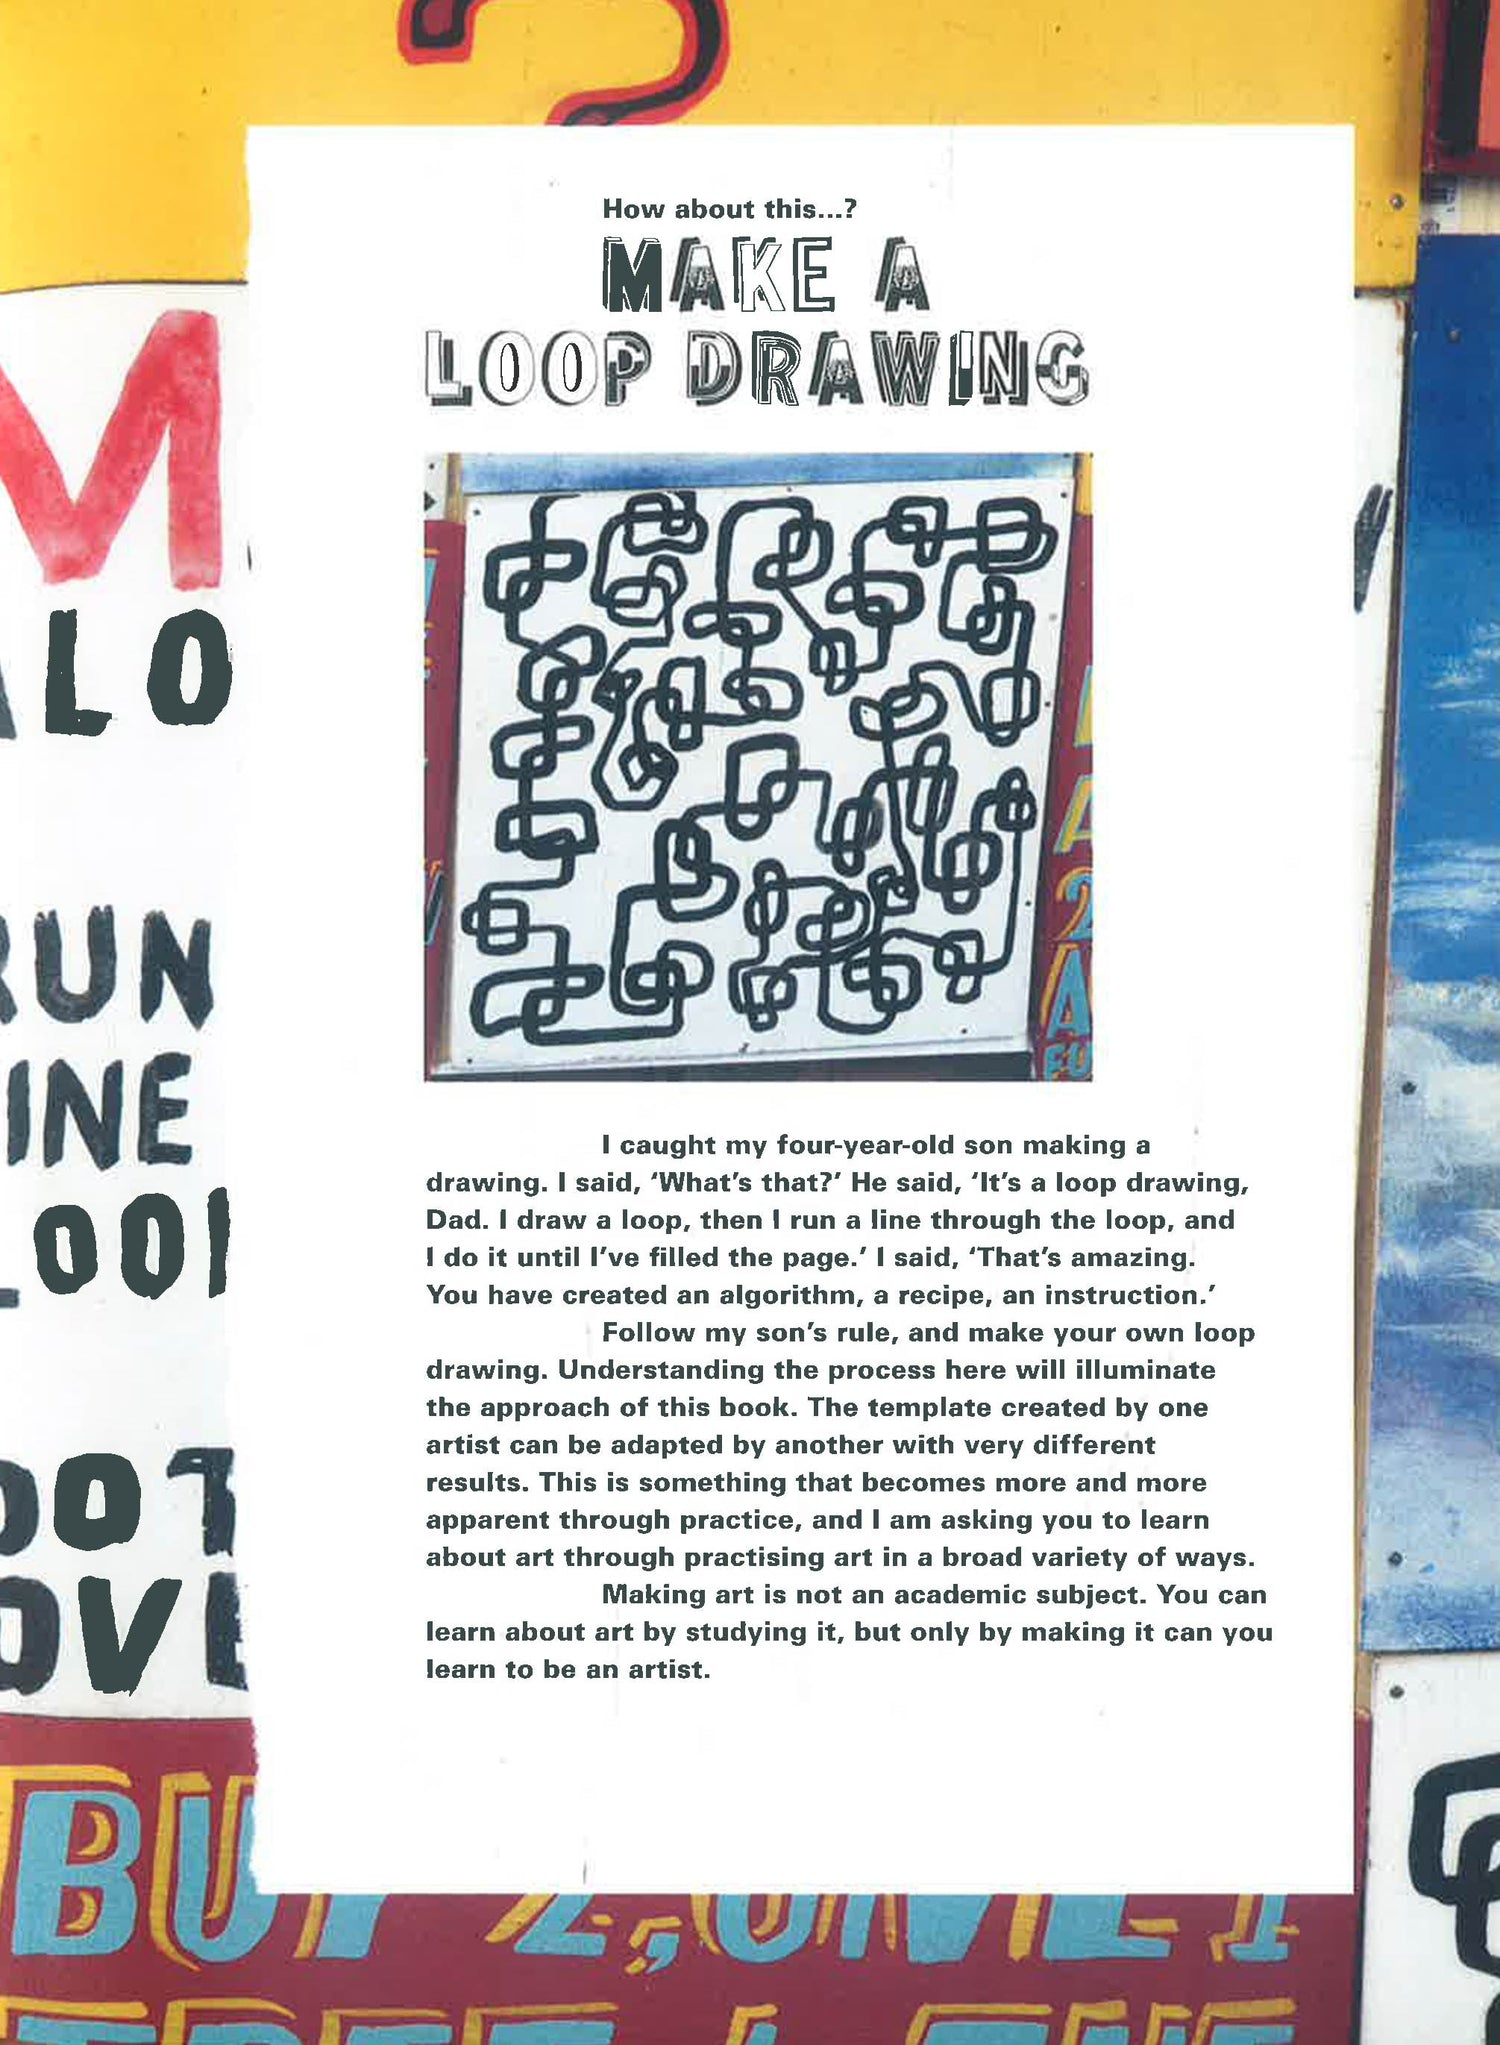 How about this...?
MAKE A
LOOP DRAWING
I caught my four-year-old son making a
drawing. I said, ‘What’s that?’ He said, ‘It’s a loop drawing,
Dad. I draw a loop, then I run a line through the loop, and
I do it until I’ve filled the page.’ I said, ‘That’s amazing.
You have created an algorithm, a recipe, an instruction.’
Follow my son’s rule, and make your own loop
drawing. Understanding the process here will illuminate
the approach of this book. The template created by one
artist can be adapted by another with very different
results. This is something that becomes more and more
apparent through practice, and I am asking you to learn
about art through practising art in a broad variety of ways.
Making art is not an academic subject. You can
learn about art by studying it, but only by making it can you
learn to be an artist.
?
M
ALO
RUN
INE
LOOP
OOT
OVE
BUY 2, ONE I